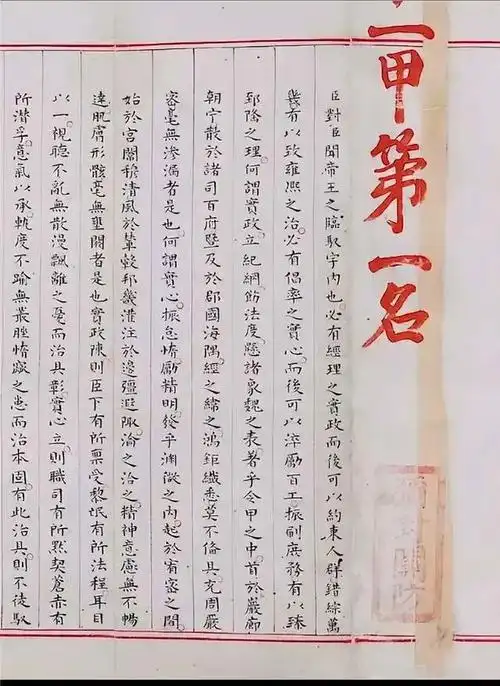 一甲第一名
臣對臣聞帝王之臨馭宇內也必有經理之實政而後可以約束人群錯綜萬
幾有以致雍熙之治必有倡率之實心而後可以淬勵百工振刷庶務有以臻
郅隆之理何謂實政立紀綱飭法度懸諸象魏之表著乎令甲之中首於巖廊
朝宁散於諸司百府暨及於郡國海隅經之緯之鴻鉅纖悉莫不備具充周嚴
密毫無滲漏者是也何謂實心振怠惰勵精明發乎淵微之內起於宥密之間
始於宮闈穆清風於輦轂邦畿灌注於邊疆遐陬淪之洽之精神意慮無不暢
達肌膚形骸毫無壅閼者是也實政陳則臣下有所稟受黎氓有所法程耳目
以一視聽不亂無散漫飄離之憂而治具彰實心立則職司有所默契蒼赤有
所潛孚意氣以承軌度不踰無叢脞惰窳之患而治本固有此治具則不徒馭
彌封關防